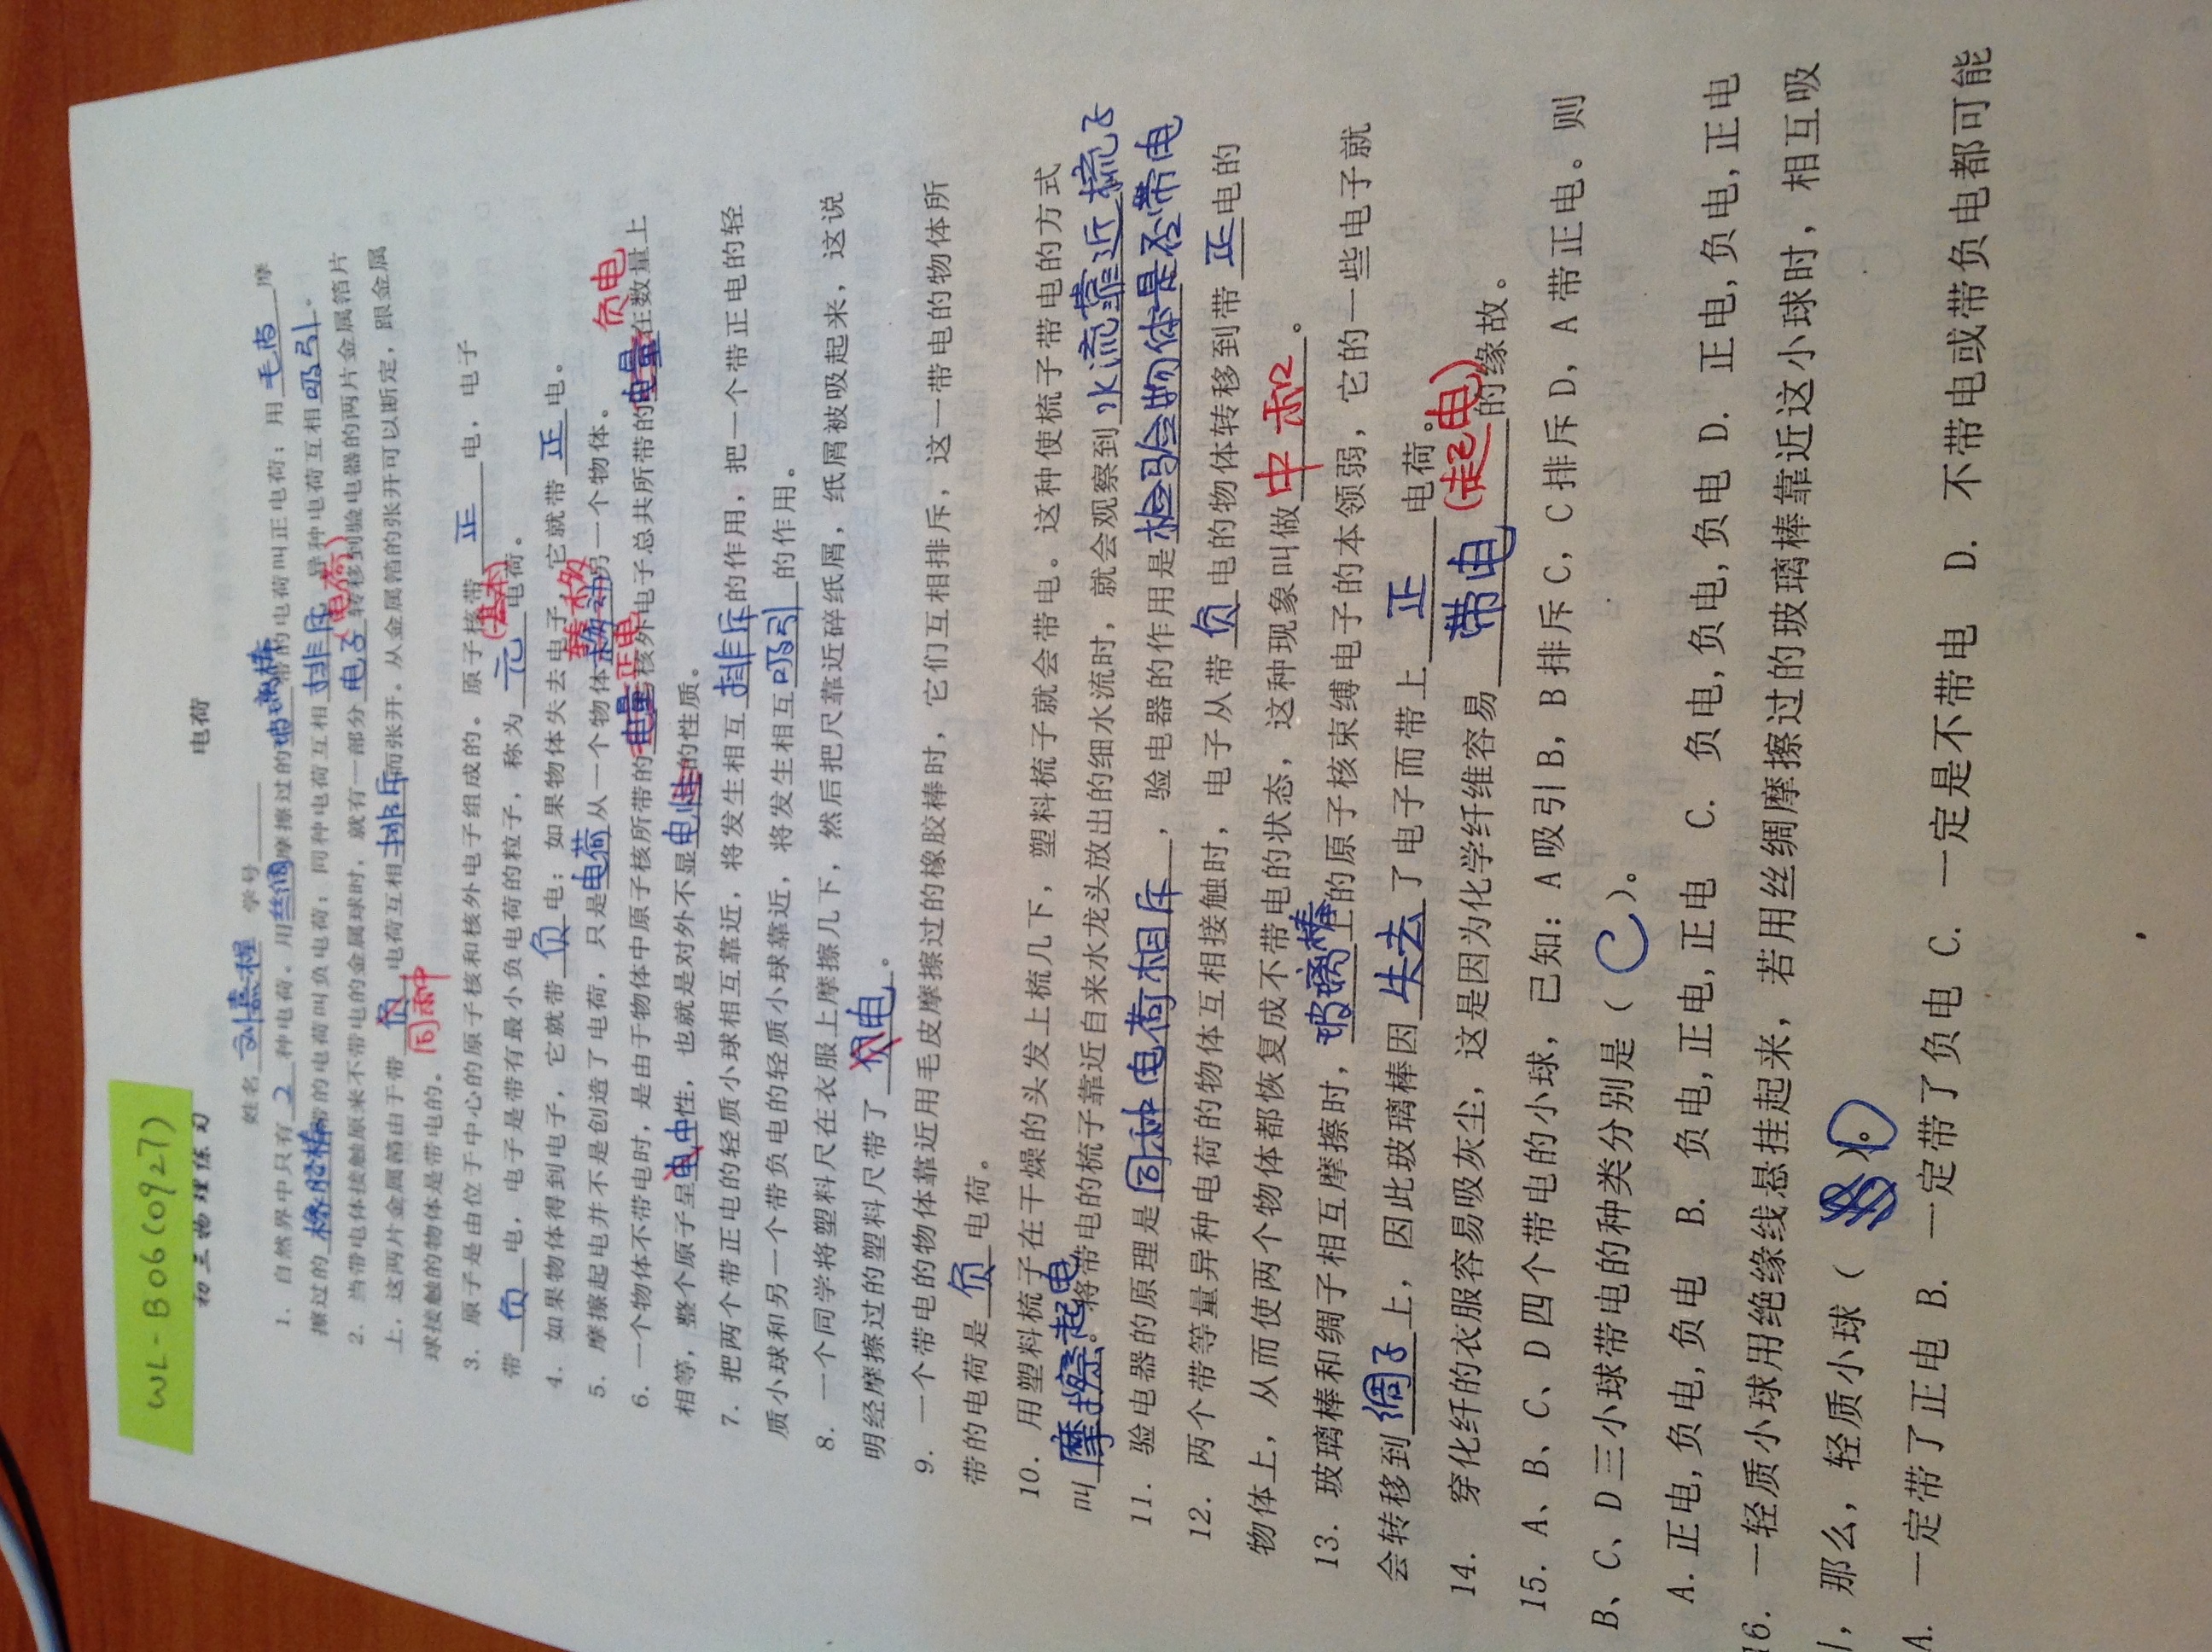 WL-B06(0927)
初三物理练习 电荷
姓名 刘熹程 学号
1. 自然界中只有 2 种电荷。用丝绸摩擦过的玻璃棒带的电荷叫正电荷；用 毛皮 摩
擦过的 橡胶棒 带的电荷叫负电荷；同种电荷互相 排斥 异种电荷互相 吸引 。
2. 当带电体接触原来不带电的金属球时，就有一部分 电子(电荷) 转移到验电器的两片金属箔片
上，这两片金属箔由于带 负 电荷互相 排斥 而张开。从金属箔的张开可以断定，跟金属
球接触的物体是带电的。 同种
3. 原子是由位于中心的原子核和核外电子组成的。原子核带 正 电，电子
带 负 电，电子是带有最小负电荷的粒子，称为 元(基本) 电荷。
4. 如果物体得到电子，它就带 负 电；如果物体失去电子，它就带 正 电。
5. 摩擦起电并不是创造了电荷，只是 电荷 从一个物体 移动 转移 另一个物体。
6. 一个物体不带电时，是由于物体中原子核所带的 电量 正电 与核外电子总共所带的 电量 负电 在数量上
相等，整个原子呈 电中 性，也就是对外不显 电性 的性质。
7. 把两个带正电的轻质小球相互靠近，将发生相互 排斥 的作用，把一个带正电的轻
质小球和另一个带负电的轻质小球靠近，将发生相互 吸引 的作用。
8. 一个同学将塑料尺在衣服上摩擦几下，然后把尺靠近碎纸屑，纸屑被吸起来，这说
明经摩擦过的塑料尺带了 负电 。
9. 一个带电的物体靠近用毛皮摩擦过的橡胶棒时，它们互相排斥，这一带电的物体所
带的电荷是 负 电荷。
10. 用塑料梳子在干燥的头发上梳几下，塑料梳子就会带电。这种使梳子带电的方式
叫 摩擦起电 。将带电的梳子靠近自来水龙头放出的细水流时，就会观察到 水流靠近梳子
11. 验电器的原理是 同种电荷相斥 ，验电器的作用是 检验物体是否带电
12. 两个带等量异种电荷的物体互相接触时，电子从带 负 电的物体转移到带 正 电的
物体上，从而使两个物体都恢复成不带电的状态，这种现象叫做 中和 。
13. 玻璃棒和绸子相互摩擦时， 玻璃棒 上的原子核束缚电子的本领弱，它的一些电子就
会转移到 绸子 上，因此玻璃棒因 失去 了电子而带上 正 电荷。
14. 穿化纤的衣服容易吸灰尘，这是因为化学纤维容易 带电(起电) 的缘故。
15. A、B、C、D四个带电的小球，已知：A吸引B，B排斥C，C排斥D，A带正电。则
B、C、D三小球带电的种类分别是（ C ）。
A. 正电,负电,负电 B. 负电,正电,正电 C. 负电,负电,负电 D. 正电,负电,正电
16. 一轻质小球用绝缘线悬挂起来，若用丝绸摩擦过的玻璃棒靠近这小球时，相互吸
引，那么，轻质小球（ ）。D
A. 一定带了正电 B. 一定带了负电 C. 一定是不带电 D. 不带电或带负电都可能